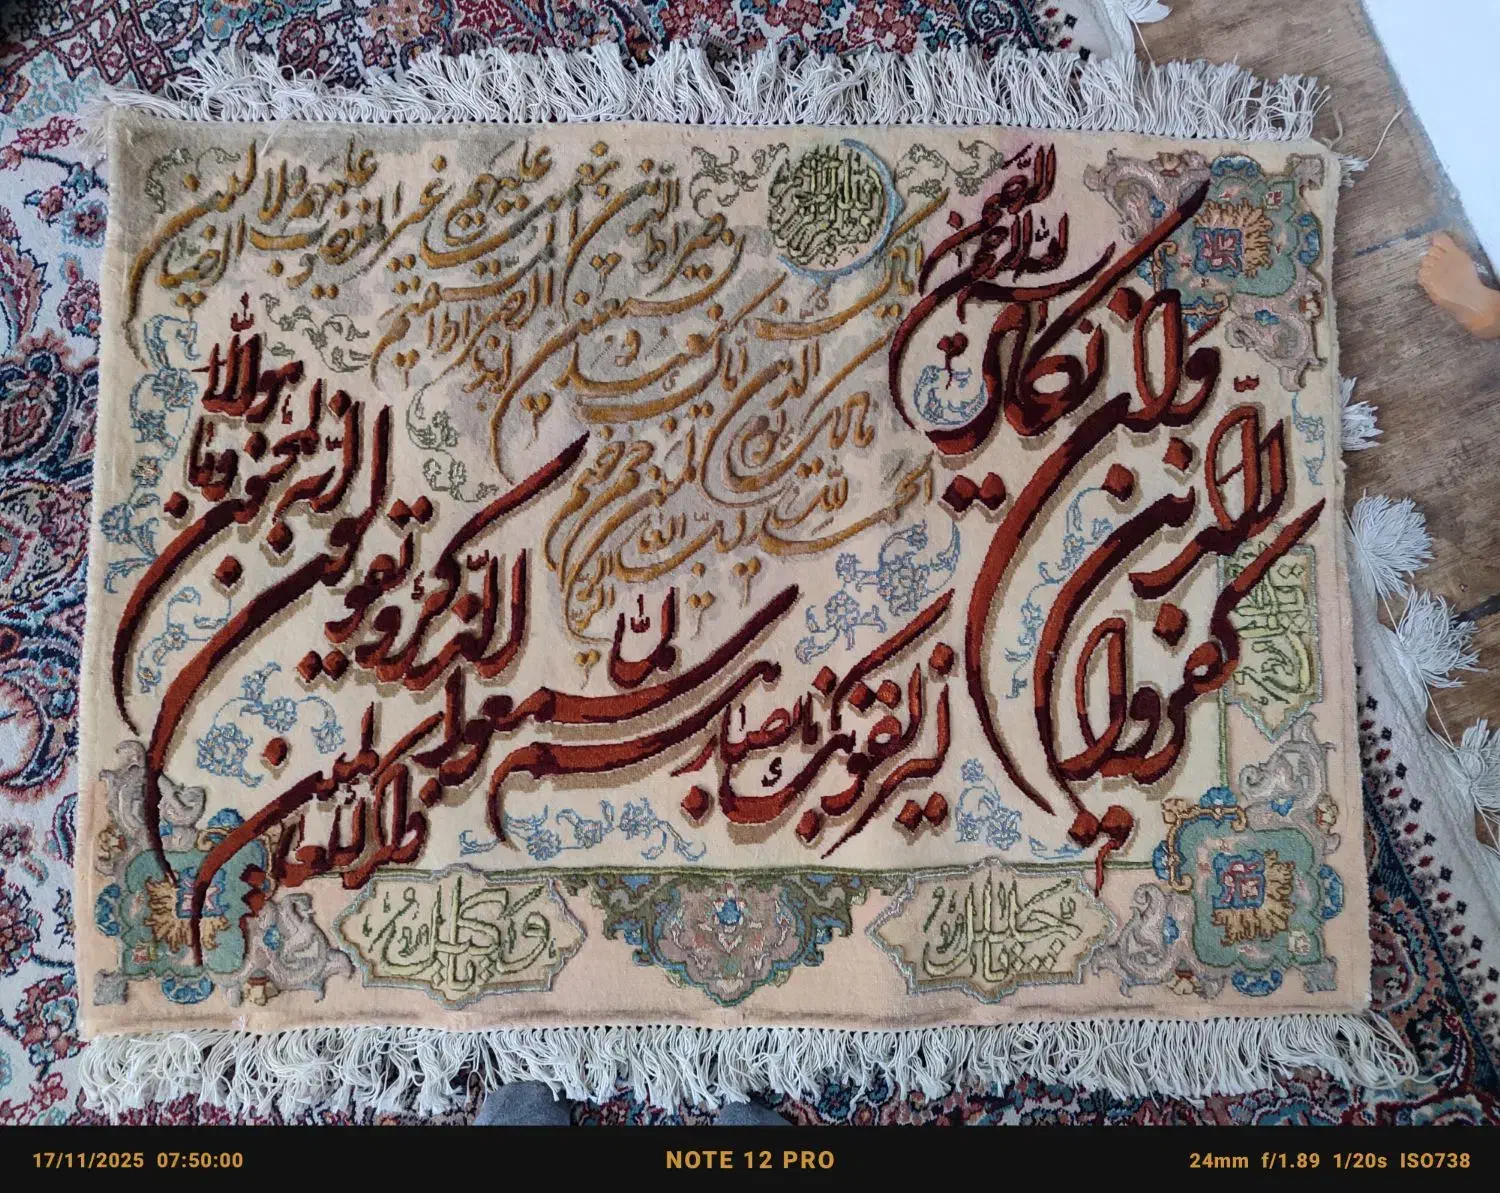 بسم الله الرحمن الرحیم
وان یکاد
الذین
کفروا
لیزلقونک بابصارهم
لما سمعوا
الذکر و یقولون
انه لمجنون وما
هو الا
ذکر للعالمین
بسم الله الرحمن الرحیم
الحمد لله رب العالمین
الرحمن الرحیم
مالک یوم الدین
ایاک نعبد و ایاک نستعین
اهدنا الصراط المستقیم
صراط الذین انعمت علیهم
غیر المغضوب علیهم ولا الضالین
17/11/2025 07:50:00
NOTE 12 PRO
24mm f/1.89 1/20s ISO738